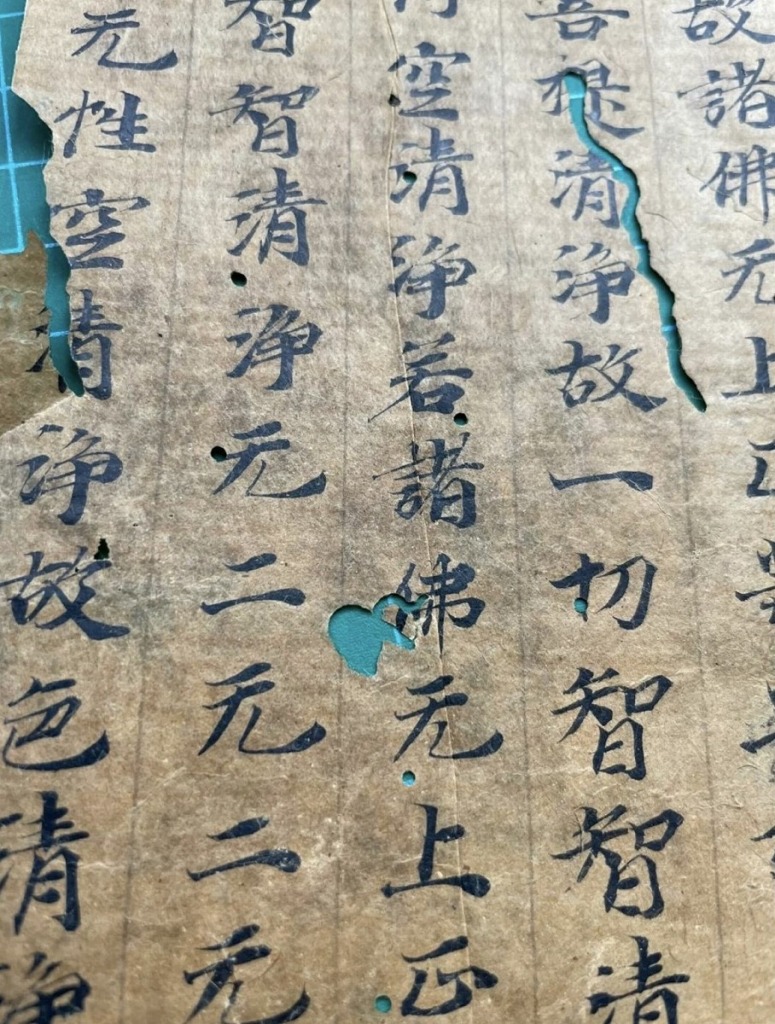 故諸佛无上正等
菩提清淨故一切智智清
空清淨若諸佛无上正
智智清淨无二无二无
无性空清淨故色清淨